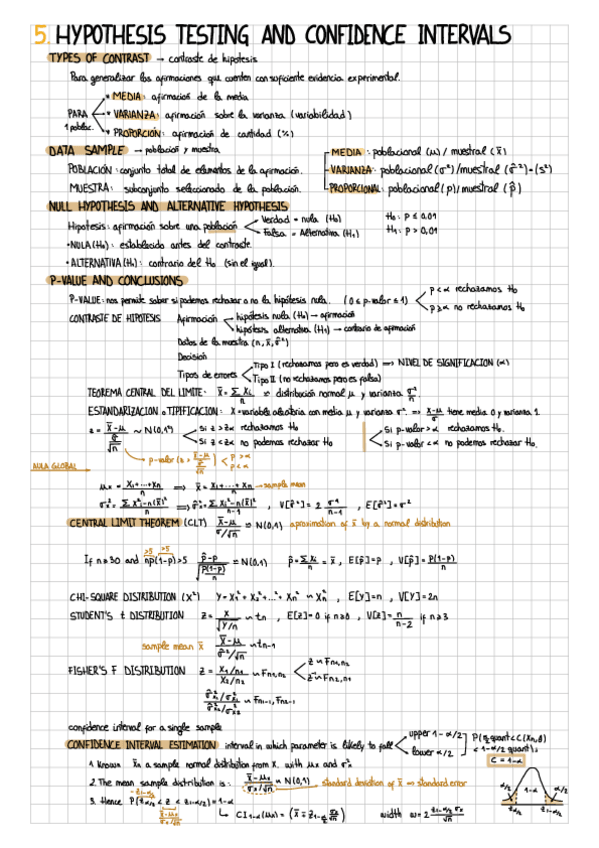 5. HYPOTHESIS TESTING AND CONFIDENCE INTERVALS
TYPES OF CONTRAST → contraste de hipotesis
Para generalizar las afirmaciones que cuenten con suficiente evidencia experimental.
* MEDIA: afirmacion de la media
PARA * VARIANZA: afirmación sobre la varianza (variabilidad)
1 poblac.
* PROPORCIÓN: afirmación de cantidad (%)
DATA SAMPLE → población y muestra
MEDIA: poblacional (μ) / muestral (x̄)
POBLACIÓN: conjunto total de elementos de la afirmación.
VARIANZA: poblacional (σ²) / muestral (σ̂²) = (s²)
MUESTRA: subconjunto seleccionado de la población.
PROPORCIONAL: poblacional (p) / muestral (p̂)
NULL HYPOTHESIS AND ALTERNATIVE HYPOTHESIS
Hipotesis: afirmación sobre una población
Verdad = nula (H₀)
Falsa = Alternativa (H₁)
H₀: p ≤ 0,01
H₁: p > 0,01
• NULA (H₀): establecida antes del contraste.
• ALTERNATIVA (H₁): contrario del H₀ (sin el igual).
P-VALUE AND CONCLUSIONS
P-VALUE: nos permite saber si podemos rechazar o no la hipótesis nula. (0 ≤ p-valor ≤ 1)
p < α rechazamos H₀
p ≥ α no rechazamos H₀
CONTRASTE DE HIPOTESIS Afirmación
hipótesis nula (H₀) → afirmación
hipótesis alternativa (H₁) → contrario de afirmación
Datos de la muestra (n, x̄, σ̂²)
Decisión
Tipos de errores
Tipo I (rechazamos pero es verdad) ⟹ NIVEL DE SIGNIFICACION (α)
Tipo II (no rechazamos pero es falsa)
TEOREMA CENTRAL DEL LIMITE: x̄ = Σ Xi / n ≈ distribución normal μ y varianza σ²/n
ESTANDARIZACION o TIPIFICACION: X = variable aleatoria con media μ y varianza σ². ⟹ (X-μ)/σ tiene media 0 y varianza 1.
z = (x̄-μ)/(σ/√n) ~ N(0,1)
Si z > zα rechazamos H₀
Si z < zα no podemos rechazar H₀
Si p-valor > α rechazamos H₀.
Si p-valor < α no podemos rechazar H₀.
p > α
p < α
AULA GLOBAL
μx = (X₁+...+Xn)/n ⟹ x̄ = (X₁+...+Xn)/n → sample mean
E[σ̂²] = σ²
CENTRAL LIMIT THEOREM (CLT) (x̄-μ)/(σ/√n) ≈ N(0,1) aproximation of x̄ by a normal distribution
>5 >5
If n ≥ 30 and np(1-p) > 5 (p̂-p)/√(p(1-p)/n) ≈ N(0,1) p̂ = Σ Xi / n = x̄ , E[p̂] = p , V[p̂] = p(1-p)/n
CHI-SQUARE DISTRIBUTION (X²) Y = X₁² + X₂² + ... + Xn² ~ Xn² , E[Y] = n , V[Y] = 2n
STUDENT'S t DISTRIBUTION z = X/√(Y/n) ~ tn , E[z] = 0 if n ≥ 0 , V[z] = n/(n-2) if n ≥ 3
sample mean x̄ (x̄-μ)/(σ̂²/√n) ~ tn-1
FISHER'S F DISTRIBUTION z = (X₁/n₁)/(X₂/n₂) ~ Fn₁,n₂
z ~ Fn₁,n₂
z⁻¹ ~ Fn₂,n₁
~ Fn₁-1, Fn₂-1
confidence interval for a single sample
CONFIDENCE INTERVAL ESTIMATION interval in which parameter is likely to fall
upper 1-α/2
lower α/2
< 1-α/2 quant)
C = 1-α
1. Known x̄n a sample normal distribution from X. with μx and σ²x
2. The mean sample distribution is: (x̄-μx)/(σx/√n) ~ N(0,1) → standard deviation of x̄ ⟹ standard error
-z1-α/2
3. Hence P(zα/2 < z < z1-α/2) = 1-α
(x̄-μx)/(σx/√n)
CI1-α(μx) = (x̄ ∓ z1-α/2 σx/√n) width w = 2 z1-α/2 σx/√n
α/2 1-α α/2
zα/2 z1-α/2